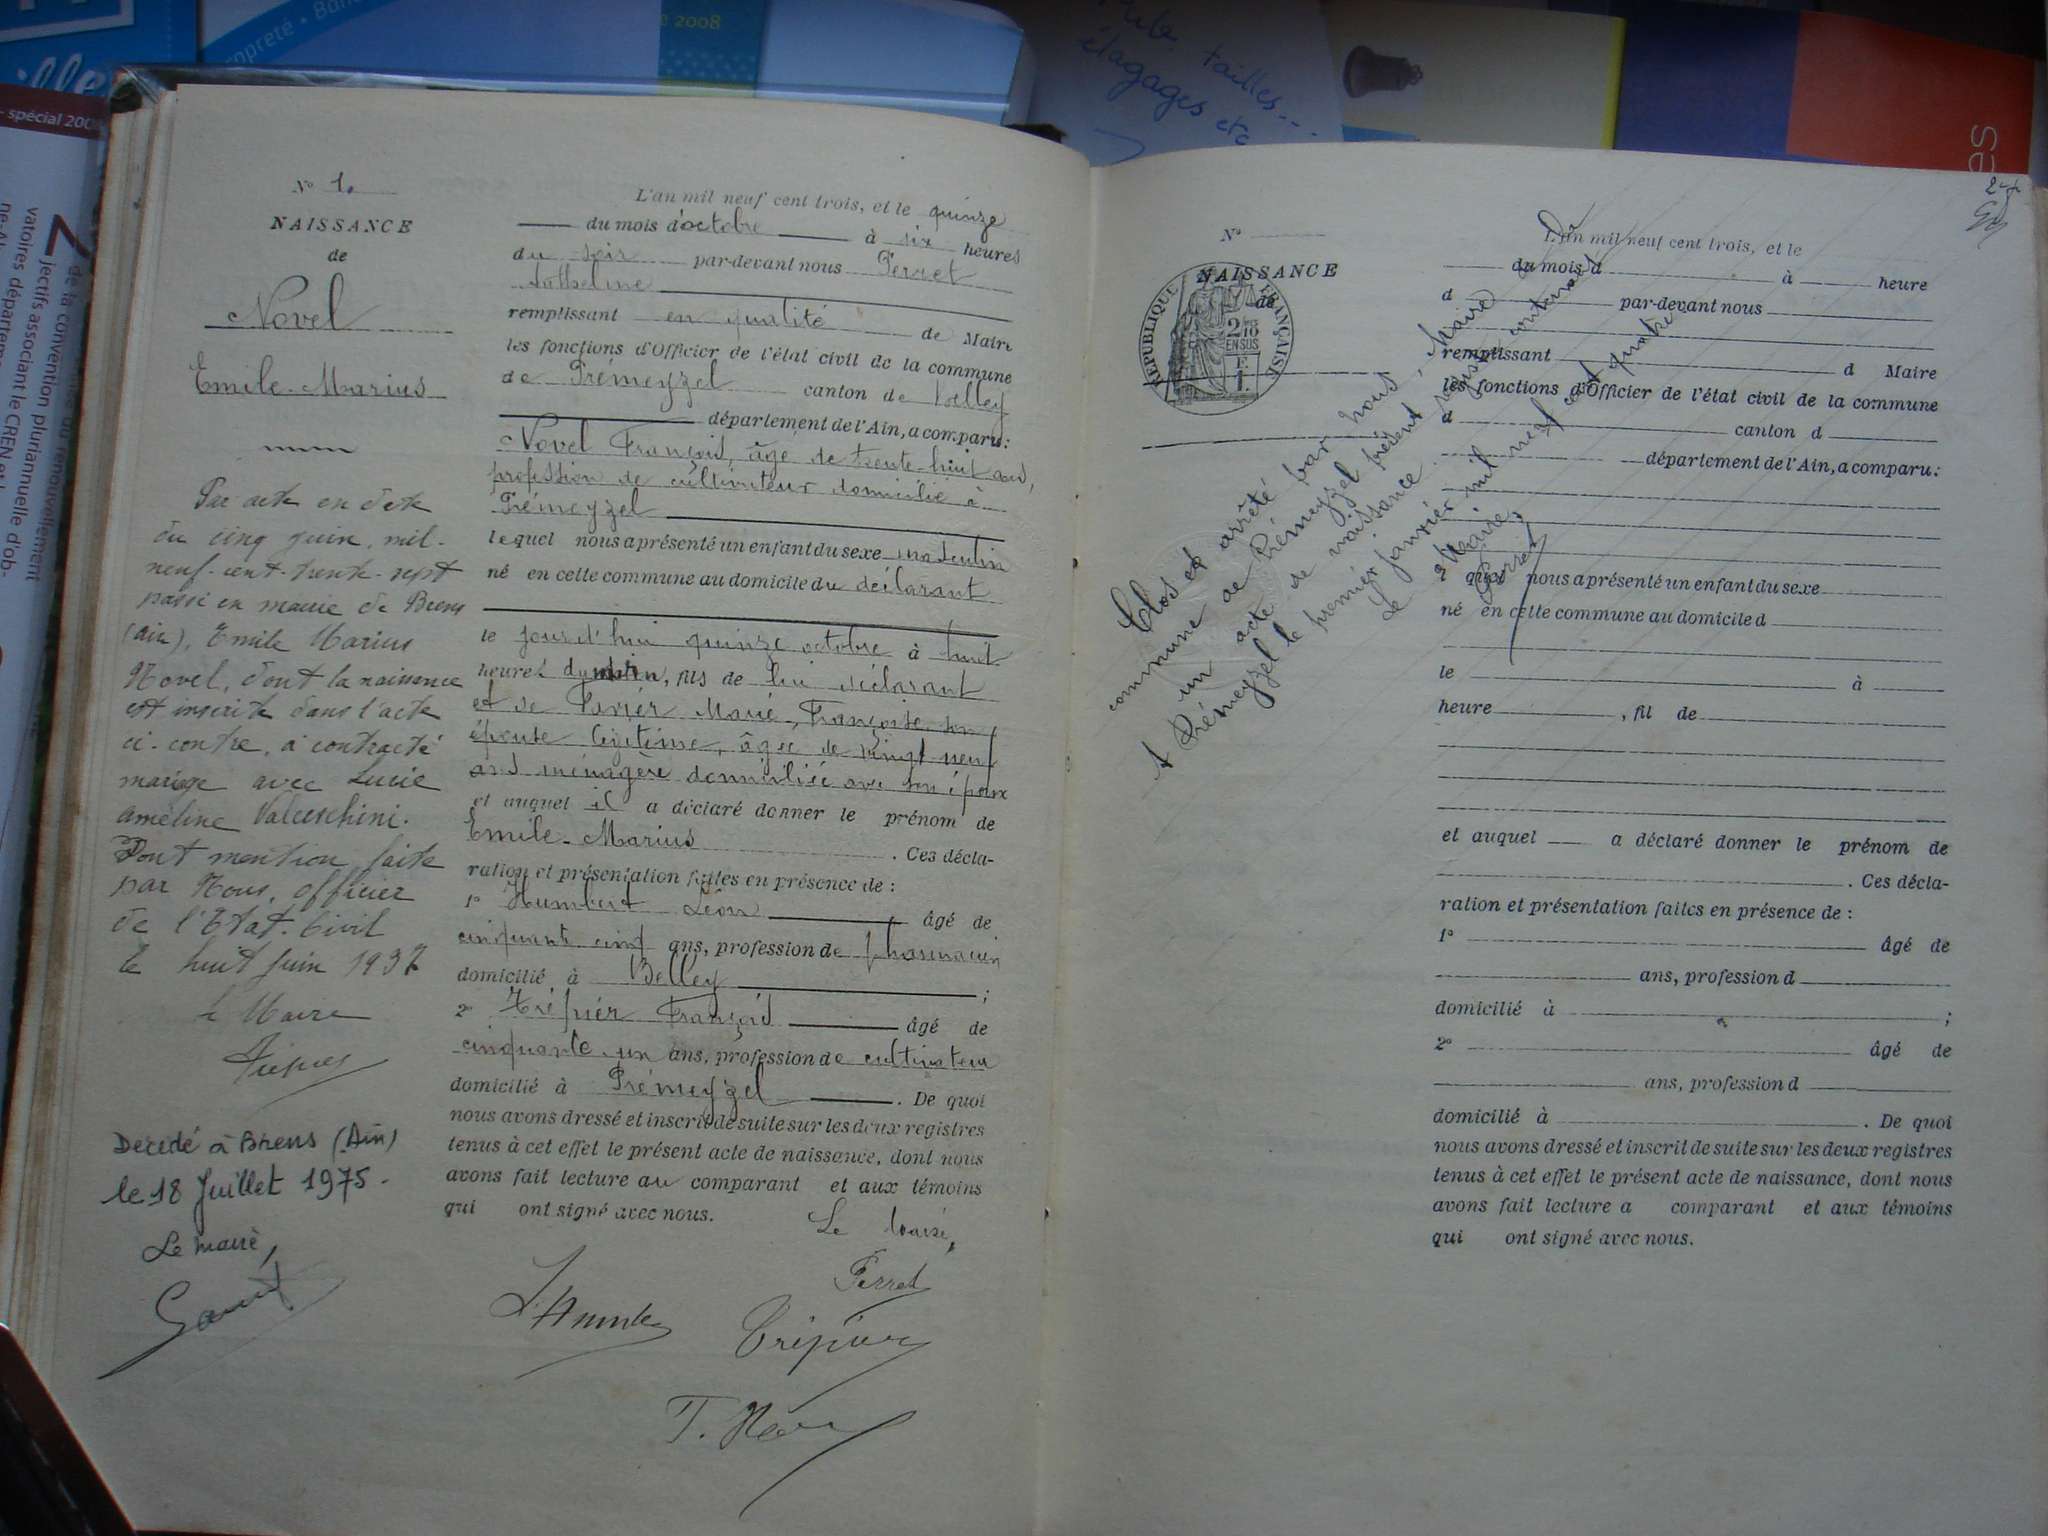 e 2008
Ban
spécial 200
jectifs associant le CREN et
de la convention pluriannuelle d'ob-
renouvellement
tailles...
élagages etc
es
N° 1.
NAISSANCE
de
Novel
Emile-Marius
Par acte en date
du cinq juin, mil-
neuf-cent-trente-sept
passé en mairie de Brens
(Ain), Emile Marius
Novel, dont la naissance
est inscrite dans l'acte
ci-contre, a contracté
mariage avec Lucie
Ameline Valceschini.
Dont mention faite
par Nous, officier
de l'Etat-Civil
le huit juin 1937
Le Maire
Décédé à Brens (Ain)
le 18 Juillet 1975.
Le maire,
L'an mil neuf cent trois, et le quinze
du mois d'octobre à six heures
du soir par-devant nous Perret
Anthelme
remplissant en qualité de Maire
les fonctions d'Officier de l'état civil de la commune
de Prémeyzel canton de Belley
département de l'Ain, a comparu:
Novel François, âgé de trente-huit ans,
profession de cultivateur domicilié à
Prémeyzel
lequel nous a présenté un enfant du sexe masculin
né en cette commune au domicile du déclarant
le jourd'hui quinze octobre à huit
heures du matin, fils de lui déclarant
et de Marie, Françoise son
épouse légitime, âgée de vingt neuf
ans ménagère domiciliée avec son époux
et auquel il a déclaré donner le prénom de
Emile-Marius . Ces décla-
ration et présentation faites en présence de :
1° Humbert Léon âgé de
cinquante cinq ans, profession de pharmacien
domicilié à Belley ;
2° Trépier François âgé de
cinquante-un ans, profession de cultivateur
domicilié à Prémeyzel . De quoi
nous avons dressé et inscrit de suite sur les deux registres
tenus à cet effet le présent acte de naissance, dont nous
avons fait lecture au comparant et aux témoins
qui ont signé avec nous.
Le Maire,
Perret
Trépier
N°
NAISSANCE
de
RÉPUBLIQUE FRANÇAISE
2/10
EN SUS
L'an mil neuf cent trois, et le
du mois d à heure
d par-devant nous
remplissant d Maire
les fonctions d'Officier de l'état civil de la commune
d canton d
département de l'Ain, a comparu:
quel nous a présenté un enfant du sexe
né en cette commune au domicile d
le à
heure , fil de
et auquel a déclaré donner le prénom de
. Ces décla-
ration et présentation faites en présence de :
1° âgé de
ans, profession d
domicilié à ;
2° âgé de
ans, profession d
domicilié à . De quoi
nous avons dressé et inscrit de suite sur les deux registres
tenus à cet effet le présent acte de naissance, dont nous
avons fait lecture a comparant et aux témoins
qui ont signé avec nous.
Clos et arrêté par nous, Maire de la
commune de Prémeyzel présent registre contenant
un acte de naissance
A Prémeyzel le premier janvier mil neuf cent quatre
Le Maire,
Perret